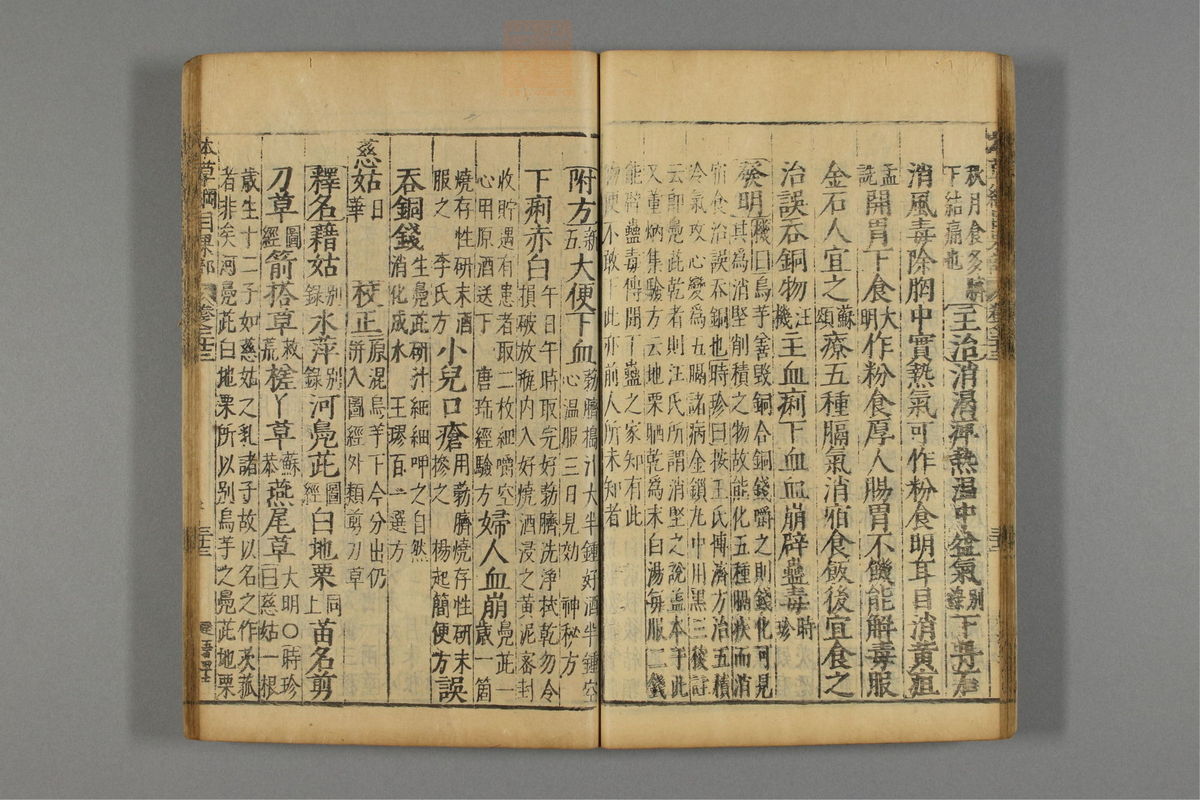 秋月食多
下結痛也主治消渴痹熱溫中益氣別錄下丹石
消風毒除胸中實熱氣可作粉食明耳目消黃疸
孟詵開胃下食大明作粉食厚人腸胃不饑能解毒服
金石人宜之蘇頌療五種膈氣消宿食飯後宜食之
治誤吞銅物汪機主血痢下血血崩辟蠱毒時珍
發明機曰烏芋善毀銅合銅錢嚼之則錢化可見
其為消堅削積之物故能化五種膈疾而消
宿食治誤吞銅也時珍曰按王氏博濟方治五積
冷氣攻心變爲五膈諸病金鎖丸中用黑三稜註
云即鳧茈乾者則汪氏所謂消堅之說蓋本于此
又董炳集驗方云地栗晒乾爲末白湯每服二錢
能辟蠱毒傳聞下蠱之家知有此
物便不敢下此亦前人所未知者
附方新五大便下血荸臍搗汁大半鍾好酒半鍾空
心溫服三日見効神秘方
下痢赤白午日午時取完好荸臍洗淨拭乾勿令
損破放瓶內入好燒酒浸之黃泥密封
收貯遇有患者取二枚細嚼空
心用原酒送下唐瑤經驗方婦人血崩鳧茈一歲一箇
燒存性研末酒
服之李氏方小兒口瘡用荸臍燒存性研末
摻之楊起簡便方誤
吞銅錢生鳧茈研汁細細呷之自然
消化成水王璆百一選方
慈姑日華校正原混烏芋下今分出仍
併入圖經外類剪刀草
釋名藉姑別錄水萍別錄河鳧茈圖經白地栗同上苗名剪
刀草圖經箭搭草救荒槎丫草蘇恭燕尾草大明○時珍
曰慈姑一根
歲生十二子如慈姑之乳諸子故以名之作茨菰
者非矣河鳧茈白地栗所以別烏芋之鳧茈地栗
本草綱目果部